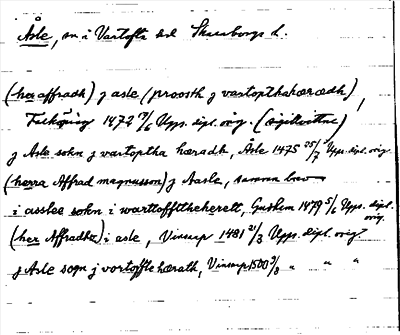 Åsle, sn i Vartofta hd Skaraborgs l.
(her affradh) j asle (proosth j vartopthahæredh),
Falköping 1472 19/6 Upps. dipl. orig. (sigillvittne)
j Asle sokn j vartoptha hæradh, Åsle 1475 25/7 Upps. dipl. orig.
(herra Affrad magnusson) j Aasle, samma brev
i asslee sokn i warttoffttheherett, Gudhem 1479 5/6 Upps. dipl. orig.
(her Affradher) i asle, Vinsarp 1481 21/3 Upps. dipl. orig.
j Asle sogn j vortoffte hærath, Vinsarp 1500 3/8 " " "